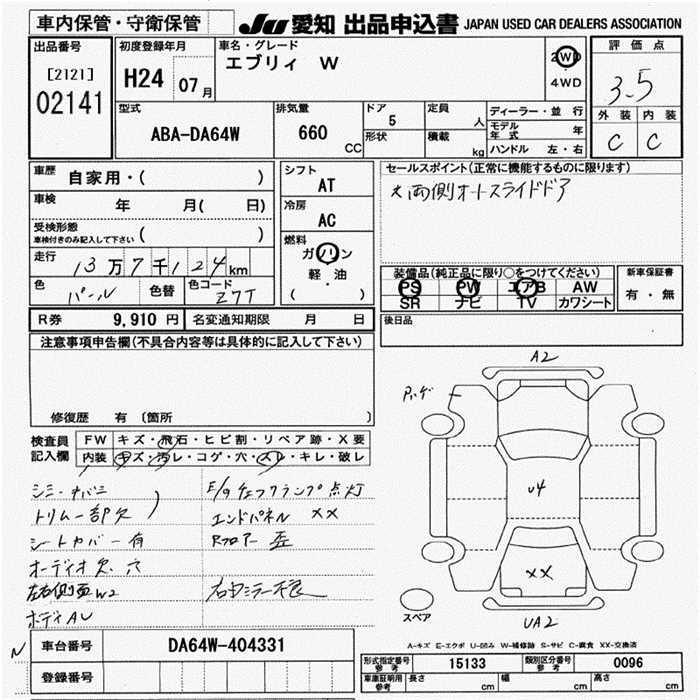 車内保管・守衛保管
JU 愛知 出品申込書 JAPAN USED CAR DEALERS ASSOCIATION
出品番号
[2121]
02141
初度登録年月
H24 07月
車名・グレード
エブリィ W
2WD
・
4WD
評価点
3.5
外装 内装
C C
型式
ABA-DA64W
排気量
660 CC
ドア 5
形状
定員 人
積載 kg
ディーラー・並 行
モデル年式 年
ハンドル 左・右
車歴 自家用・( )
車検 年 月( 日)
受検形態
車検付きのみ記入して下さい ( )
走行 13万7千124km
色 パール 色替 色コード Z7T
シフト
AT
冷房
AC
燃料
ガソリン
軽・油
( )
セールスポイント(正常に機能するものに限ります)
両側オートスライドドア
装備品(純正品に限り○をつけてください)
PS PW エアB AW
SR ナビ TV カワシート
新車保証書
有・無
R券 9,910 円 名変通知期限 月 日
後日品
注意事項申告欄(不具合内容等は具体的に記入して下さい)
修復歴 有 〔箇所
検査員
記入欄
FW キズ・飛石・ヒビ割・リペア跡・X要
内装 キズ・汚レ・コゲ・穴・スレ・キレ・破レ
トリム一部欠
シートカバー有
オーディオ欠 穴
左右側面W2
ボディAU
E/gチェックランプ点灯
エンドパネル XX
Rフロアー 歪
右ミラー不良
A2
U4
XX
UA2
スペア
A-キズ E-エクボ U-凹み W-補修跡 S-サビ C-腐食 XX-交換済
N
車台番号 DA64W-404331
登録番号
形式指定番号
参考
15133
類別区分番号
参考
0096
車庫証明用
参考
長さ cm
幅 cm
高さ cm